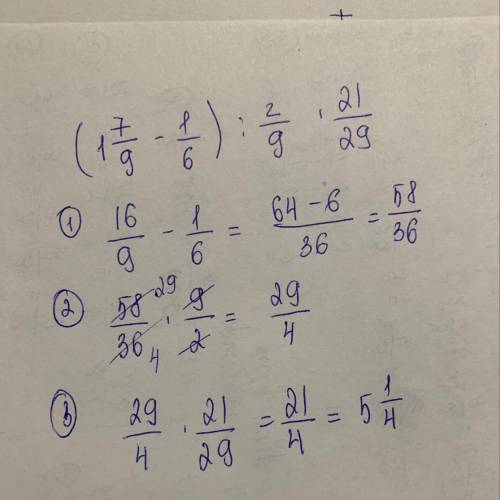 +
(1 7/9 - 1/6) : 2/9 · 21/29
① 16/9 - 1/6 = (64 - 6)/36 = 58/36
② 58/36 · 9/2 = 29/4
29
4
③ 29/4 · 21/29 = 21/4 = 5 1/4